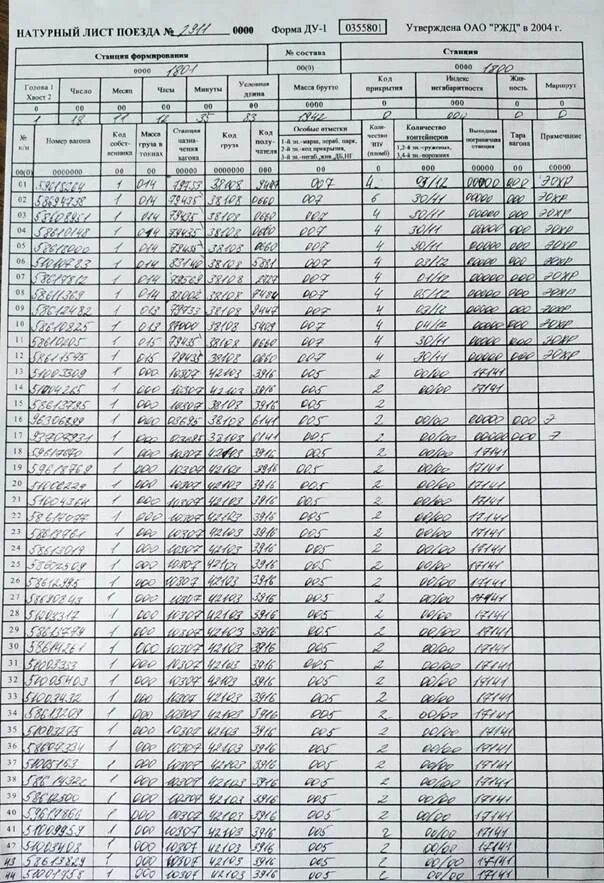 НАТУРНЫЙ ЛИСТ ПОЕЗДА № 2911 0000 Форма ДУ-1 0355801 Утверждена ОАО "РЖД" в 2004 г.
Станция формирования № состава Станция
0000 1801 00(0) 0000 1800
Голова 1 Хвост 2 Число Месяц Часы Минуты Условная длина Масса брутто Код прикрытия Индекс негабаритности Жив-ность Маршрут
0 00 00 00 00 00 0000 0 0000 0 0
1 18 11 12 35 83 1942 0 000 0 0
№ п/п Номер вагона Код собст-венника Масса груза в тоннах Станция назна-чения вагона Код груза Код полу-чателя Особые отметки 1-й зн.-марш, нераб. парк, 2-й зн.-код прикрытия, 3-й зн.-негаб. жив. ДБ, НГ Количе-ство ЗПУ (пломб) Количество контейнеров 1,2-й зн.-груженых, 3,4-й зн.-порожних Выходная пограничная станция Тара вагона Примечание
01 1 014 38108 007 4 00000 000 ЭОХР
02 58694738 1 014 79435 38108 0660 007 6 30/11 00000 000 ЭОХР
03 1 014 79435 38108 0660 007 4 30/11 00000 000 ЭОХР
04 58610148 1 014 79435 38108 0660 007 4 30/11 00000 000 ЭОХР
05 1 014 79435 38108 0660 007 4 30/11 00000 000 ЭОХР
06 1 014 83140 38108 007 4 03/12 00000 000 ЭОХР
07 1 014 38108 007 4 01/12 00000 000 ЭОХР
08 58611369 1 014 38108 007 4 05/12 00000 000 ЭОХР
09 58612482 1 013 38108 9447 007 4 00000 000 ЭОХР
10 58610825 1 013 38108 007 4 04/12 00000 000 ЭОХР
11 58610205 1 015 79435 38108 0660 007 4 30/11 00000 000 ЭОХР
12 58611545 1 015 79435 38108 0660 007 4 30/11 00000 000 ЭОХР
13 51003309 1 000 10307 42103 3916 005 2 00/00 17141
14 1 000 10307 42103 3916 005 2 00/00 17141
15 58613795 1 000 10307 3916 005 2
16 96306899 1 000 38108 6141 005 2 00/00 00000 000 Э
17 1 000 38108 6141 005 2 00/00 00000 000 Э
18 1 000 10307 42103 3916 005 2 00/00 17141
19 59618769 1 000 10307 42103 3916 005 2 00/00 17141
20 51008229 1 000 10307 42103 3916 005 2 00/00 17141
21 51004364 1 000 10307 42103 3916 005 2 00/00 17141
22 58617077 1 000 10307 42103 3916 005 2 00/00 17141
23 58617761 1 000 10307 42103 3916 005 2 00/00 17141
24 58615019 1 000 10307 42103 3916 005 2 00/00 17141
25 58602509 1 000 10307 42103 3916 005 2 00/00 17141
26 58612995 1 000 10307 42103 3916 005 2 00/00 17141
27 1 000 10307 42103 3916 005 2 00/00 17141
28 51003317 1 000 10307 42103 3916 005 2 00/00 17141
29 1 000 10307 42103 3916 005 2 00/00 17141
30 58614261 1 000 10307 42103 3916 005 2 00/00 17141
31 51003333 1 000 10307 42103 3916 005 2 00/00 17141
32 51005403 1 000 10307 42103 3916 005 2 00/00 17141
33 51003432 1 000 10307 42103 3916 005 2 00/00 17141
34 58613209 1 000 10307 42103 3916 005 2 00/00 17141
35 51003275 1 000 10307 42103 3916 005 2 00/00 17141
36 58607334 1 000 10307 42103 3916 005 2 00/00 17141
37 51005163 1 000 10307 42103 3916 005 2 00/00 17141
38 58614322 1 000 10307 42103 3916 005 2 00/00 17141
39 58612300 1 000 10307 42103 3916 005 2 00/00 17141
40 59617860 1 000 10307 42103 3916 005 2 00/00 17141
41 51009959 1 000 10307 42103 3916 005 2 00/00 17141
42 51003408 1 000 10307 42103 3916 005 2 00/00 17141
43 58613829 1 000 10307 42103 3916 005 2 00/00 17141
44 51001758 1 000 10307 42103 3916 005 2 00/00 17141